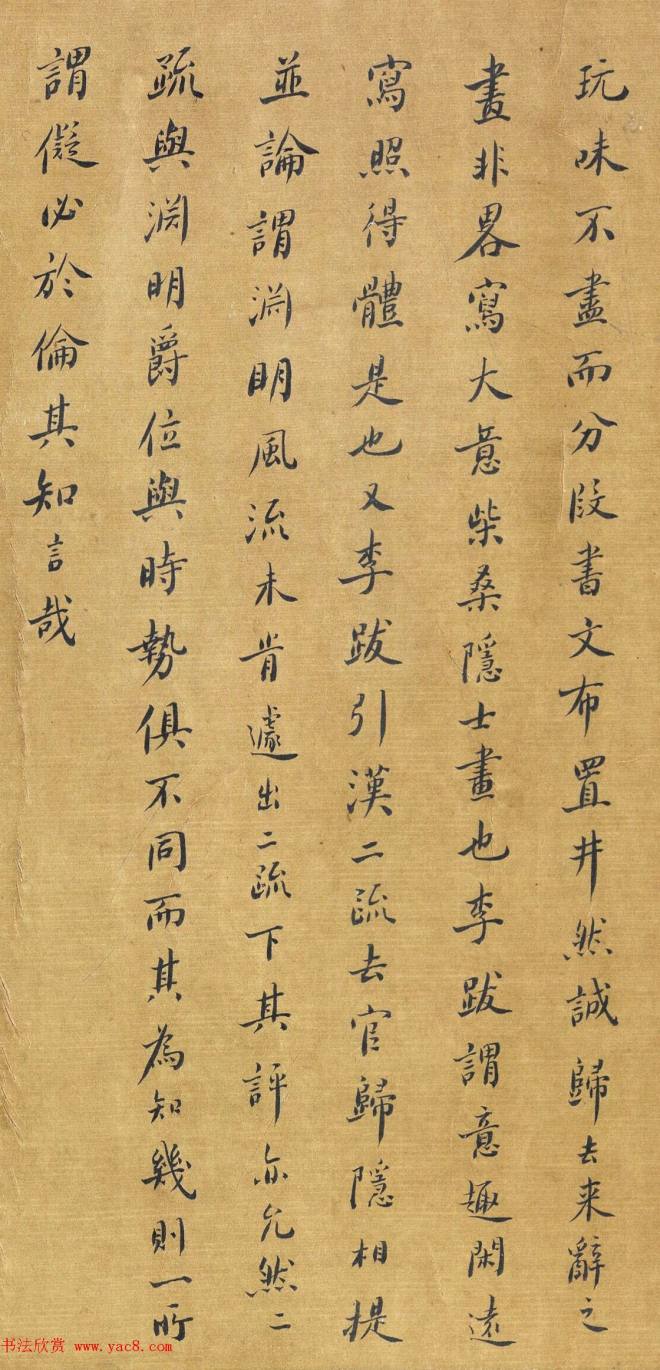 玩味不盡而分段書文布置井然誠歸去来辭之
畫非畧寫大意柴桑隱士畫也李跋謂意趣閑遠
寫照得體是也又李跋引漢二疏去官歸隱相提
並論謂淵明風流未肯遽出二疏下其評亦允然二
疏與淵明爵位與時勢俱不同而其為知幾則一所
謂儗必於倫其知言哉
书法欣赏 www.yac8.com